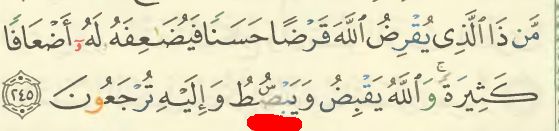 مَّن ذَا ٱلَّذِى يُقْرِضُ ٱللَّهَ قَرْضًا حَسَنًا فَيُضَـٰعِفَهُۥ لَهُۥٓ أَضْعَافًا
كَثِيرَةً ۚ وَٱللَّهُ يَقْبِضُ وَيَبْصُۜطُ وَإِلَيْهِ تُرْجَعُونَ ٢٤٥